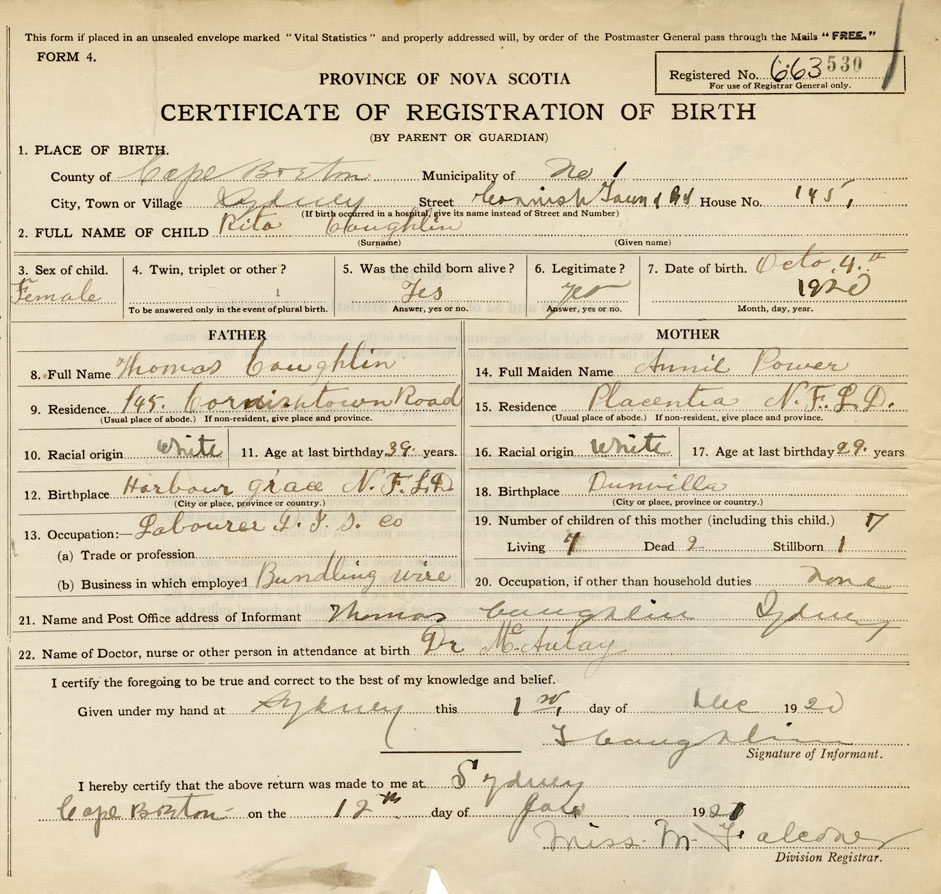 This form if placed in an unsealed envelope marked "Vital Statistics" and properly addressed will, by order of the Postmaster General pass through the Mails "FREE."
FORM 4.
Registered No. 663 530
For use of Registrar General only.
PROVINCE OF NOVA SCOTIA
CERTIFICATE OF REGISTRATION OF BIRTH
(BY PARENT OR GUARDIAN)
1. PLACE OF BIRTH.
County of Cape Breton Municipality of No 1
City, Town or Village Sydney Street Cornish Town Rd House No. 145
(If birth occurred in a hospital, give its name instead of Street and Number)
2. FULL NAME OF CHILD Rita Coughlin
(Surname) (Given name)
3. Sex of child. 4. Twin, triplet or other? 5. Was the child born alive? 6. Legitimate? 7. Date of birth. Octo. 4th
Female Yes yes 1920
To be answered only in the event of plural birth. Answer, yes or no. Answer, yes or no. Month, day, year.
FATHER MOTHER
8. Full Name Thomas Coughlin 14. Full Maiden Name Annie Power
9. Residence. 145. Cornishtown Road 15. Residence Placentia N.F.L.D.
(Usual place of abode.) If non-resident, give place and province. (Usual place of abode.) If non-resident, give place and province.
10. Racial origin White 11. Age at last birthday 39. years. 16. Racial origin White 17. Age at last birthday 29. years
12. Birthplace Harbour grace N.F.L.D 18. Birthplace Dunvilla
(City or place, province or country.) (City or place, province or country.)
13. Occupation:— Labourer D. I. S. Co 19. Number of children of this mother (including this child.) 7
(a) Trade or profession Living 4 Dead 2 Stillborn 1
(b) Business in which employed Bundling wire 20. Occupation, if other than household duties none
21. Name and Post Office address of Informant Thomas Coughlin Sydney
22. Name of Doctor, nurse or other person in attendance at birth Dr McAulay
I certify the foregoing to be true and correct to the best of my knowledge and belief.
Given under my hand at Sydney this 1st day of Dec 1920
T Coughlin
Signature of Informant.
I hereby certify that the above return was made to me at Sydney
Cape Breton on the 12th day of Jan 1921
Miss. M. Falconer
Division Registrar.